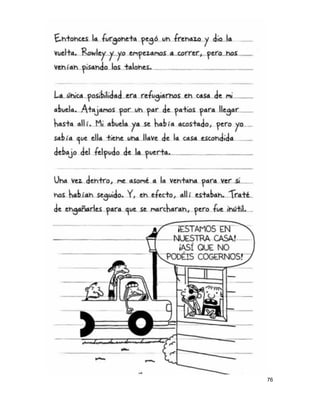 Entonces la furgoneta pegó un frenazo y dio la
vuelta. Rowley y yo empezamos a correr, pero nos
venían pisando los talones.
La única posibilidad era refugiarnos en casa de mi
abuela. Atajamos por un par de patios para llegar
hasta allí. Mi abuela ya se había acostado, pero yo
sabía que ella tiene una llave de la casa escondida
debajo del felpudo de la puerta.
Una vez dentro, me asomé a la ventana para ver si
nos habían seguido. Y, en efecto, allí estaban. Traté
de engañarles para que se marcharan, pero fue inútil.
¡ESTAMOS EN
NUESTRA CASA!
¡ASÍ QUE NO
PODÉIS COGERNOS!
76